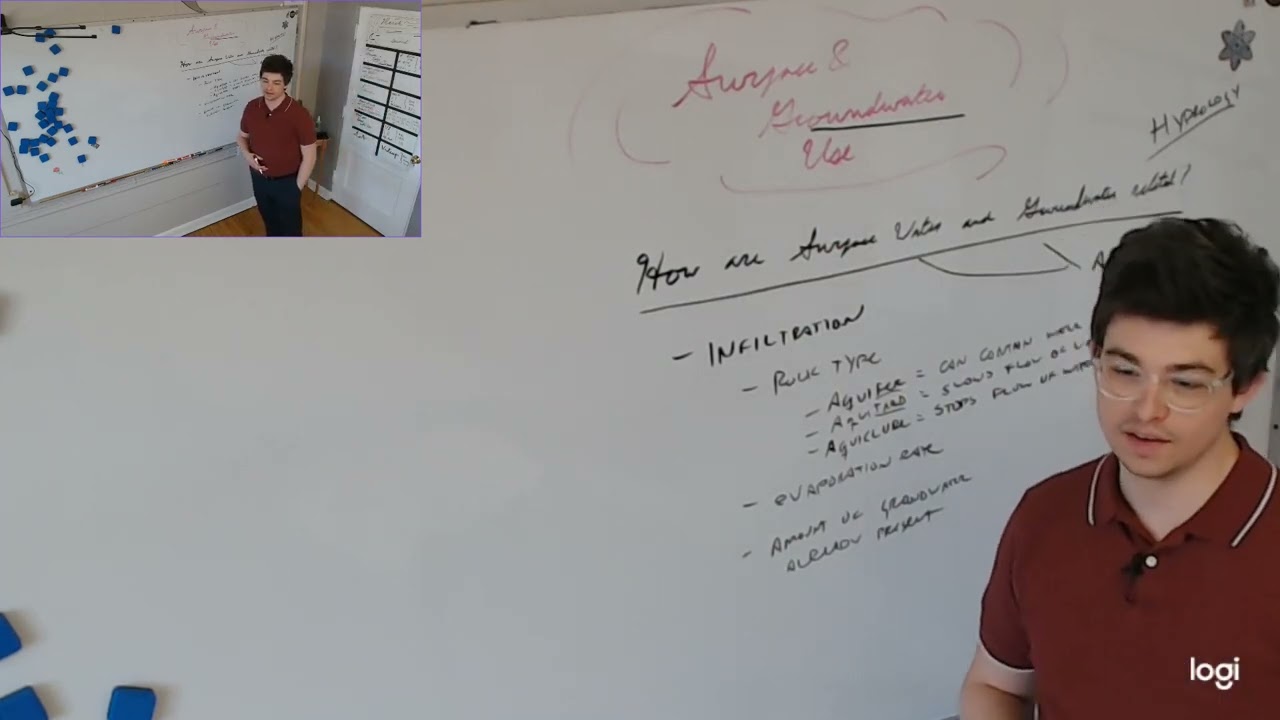 Surface &
Groundwater
Use
HYDROLOGY
How are Surface Water and Groundwater related?
- INFILTRATION
- ROCK TYPE
- AQUIFER = CAN CONTAIN
- AQUITARD = SLOWS FLOW OF
- AQUICLUDE = STOPS FLOW OF WATER
- EVAPORATION RATE
- AMOUNT OF GROUNDWATER
ALREADY PRESENT
logi